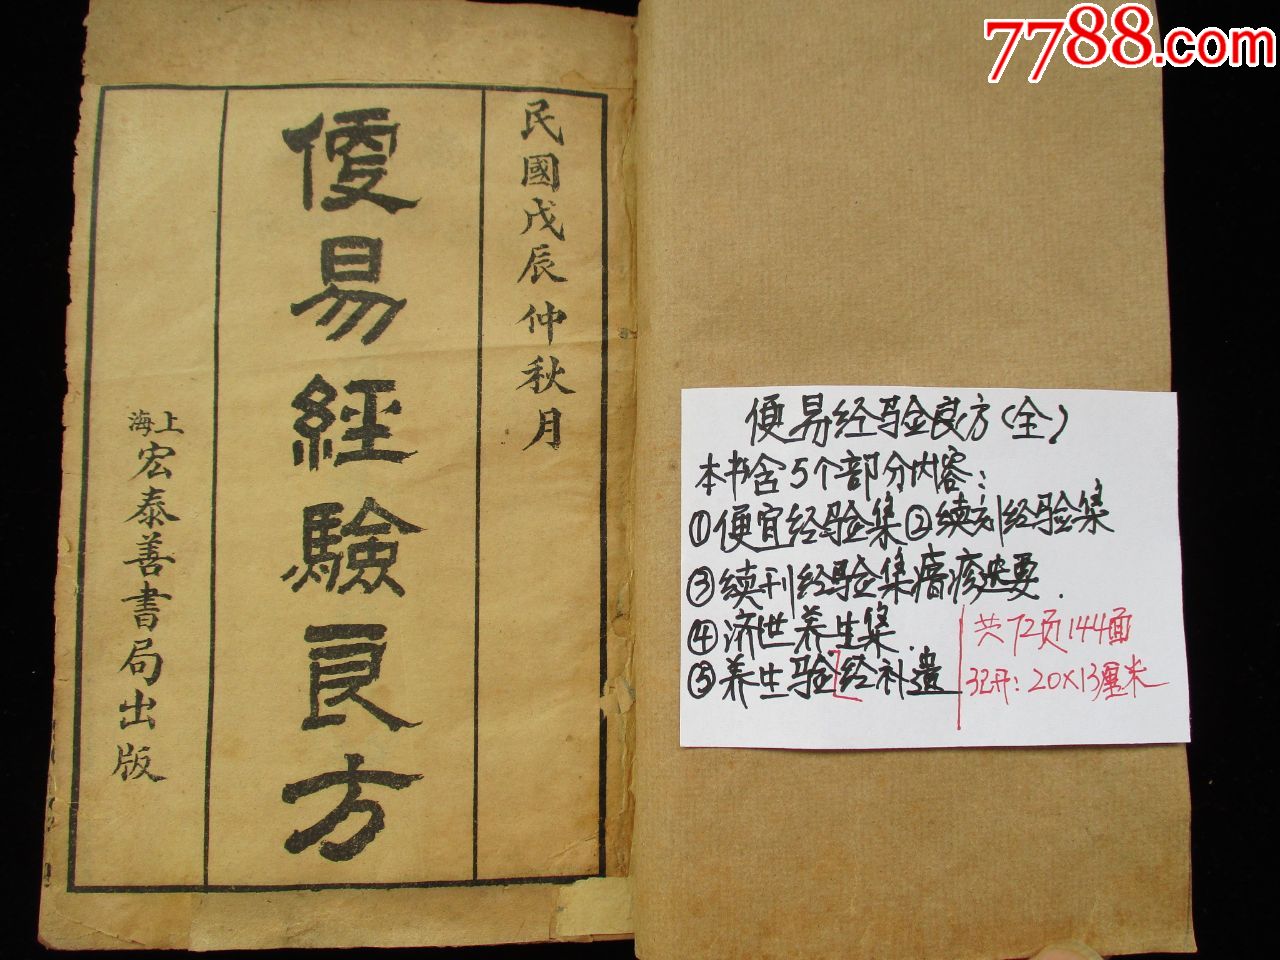 7788.com
民國戊辰仲秋月
便易經驗良方
上海
宏泰善書局出版
便易经验良方(全)
本书含5个部分内容:
①便宜经验集②续刻经验集
③续刊经验集瘄疹迷要.
④济世养生集.
⑤养生验经补遗
共72页144面
32开:20×13厘米